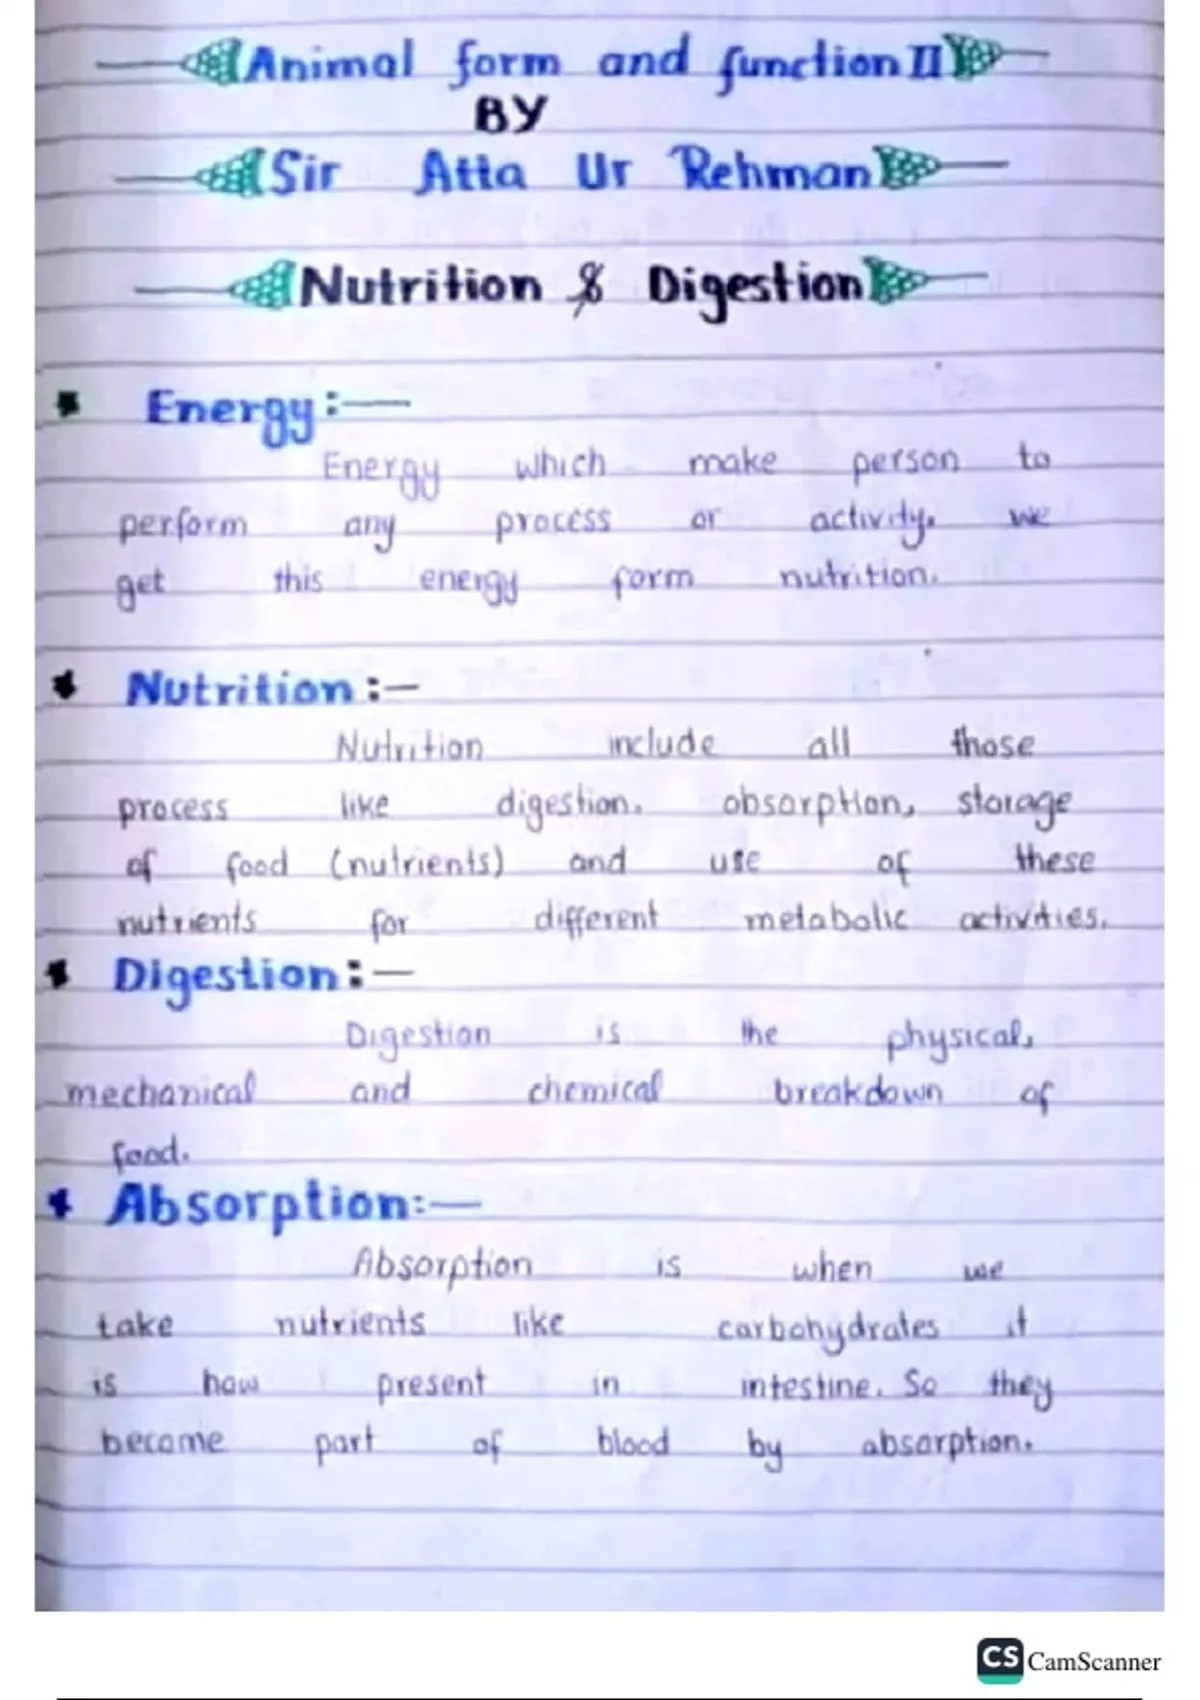 Animal form and function II
BY
Sir Atta Ur Rehman
Nutrition & Digestion
Energy:—
Energy which make person to
perform any process or activity. we
get this energy form nutrition.
Nutrition:—
Nutrition include all those
process like digestion. absorption, storage
of food (nutrients) and use of these
nutrients for different metabolic activities.
Digestion:—
Digestion is the physical,
mechanical and chemical breakdown of
food.
Absorption:—
Absorption is when we
take nutrients like carbohydrates it
is how present in intestine. So they
become part of blood by absorption.
CS CamScanner